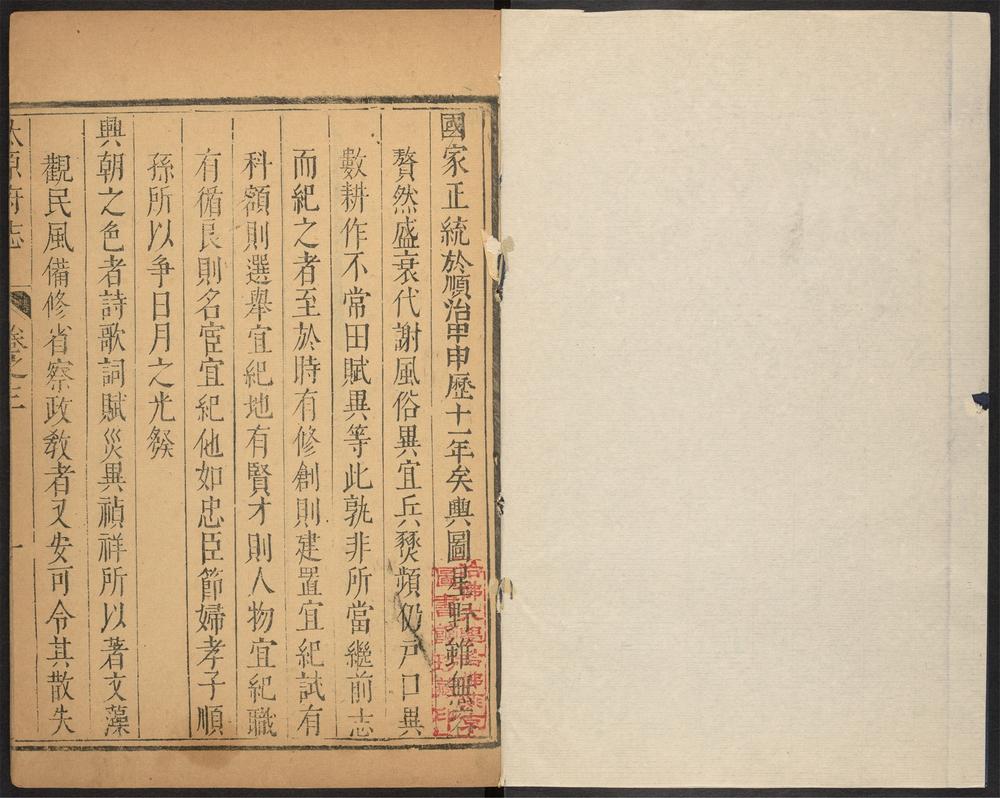 國家正統於順治甲申歷十一年矣輿圖星野雖無容
贅然盛衰代謝風俗異宜兵燹頻仍戶口異
數耕作不常田賦異等此孰非所當繼前志
而紀之者至於時有修創則建置宜紀試有
科額則選舉宜紀地有賢才則人物宜紀職
有循良則名宦宜紀他如忠臣節婦孝子順
孫所以争日月之光發
興朝之色者詩歌詞賦災異禎祥所以著文藻
觀民風備修省察政敎者又安可令其散失
太原府志
卷之三
一
哈佛大學哈佛燕京
圖書館珍藏印